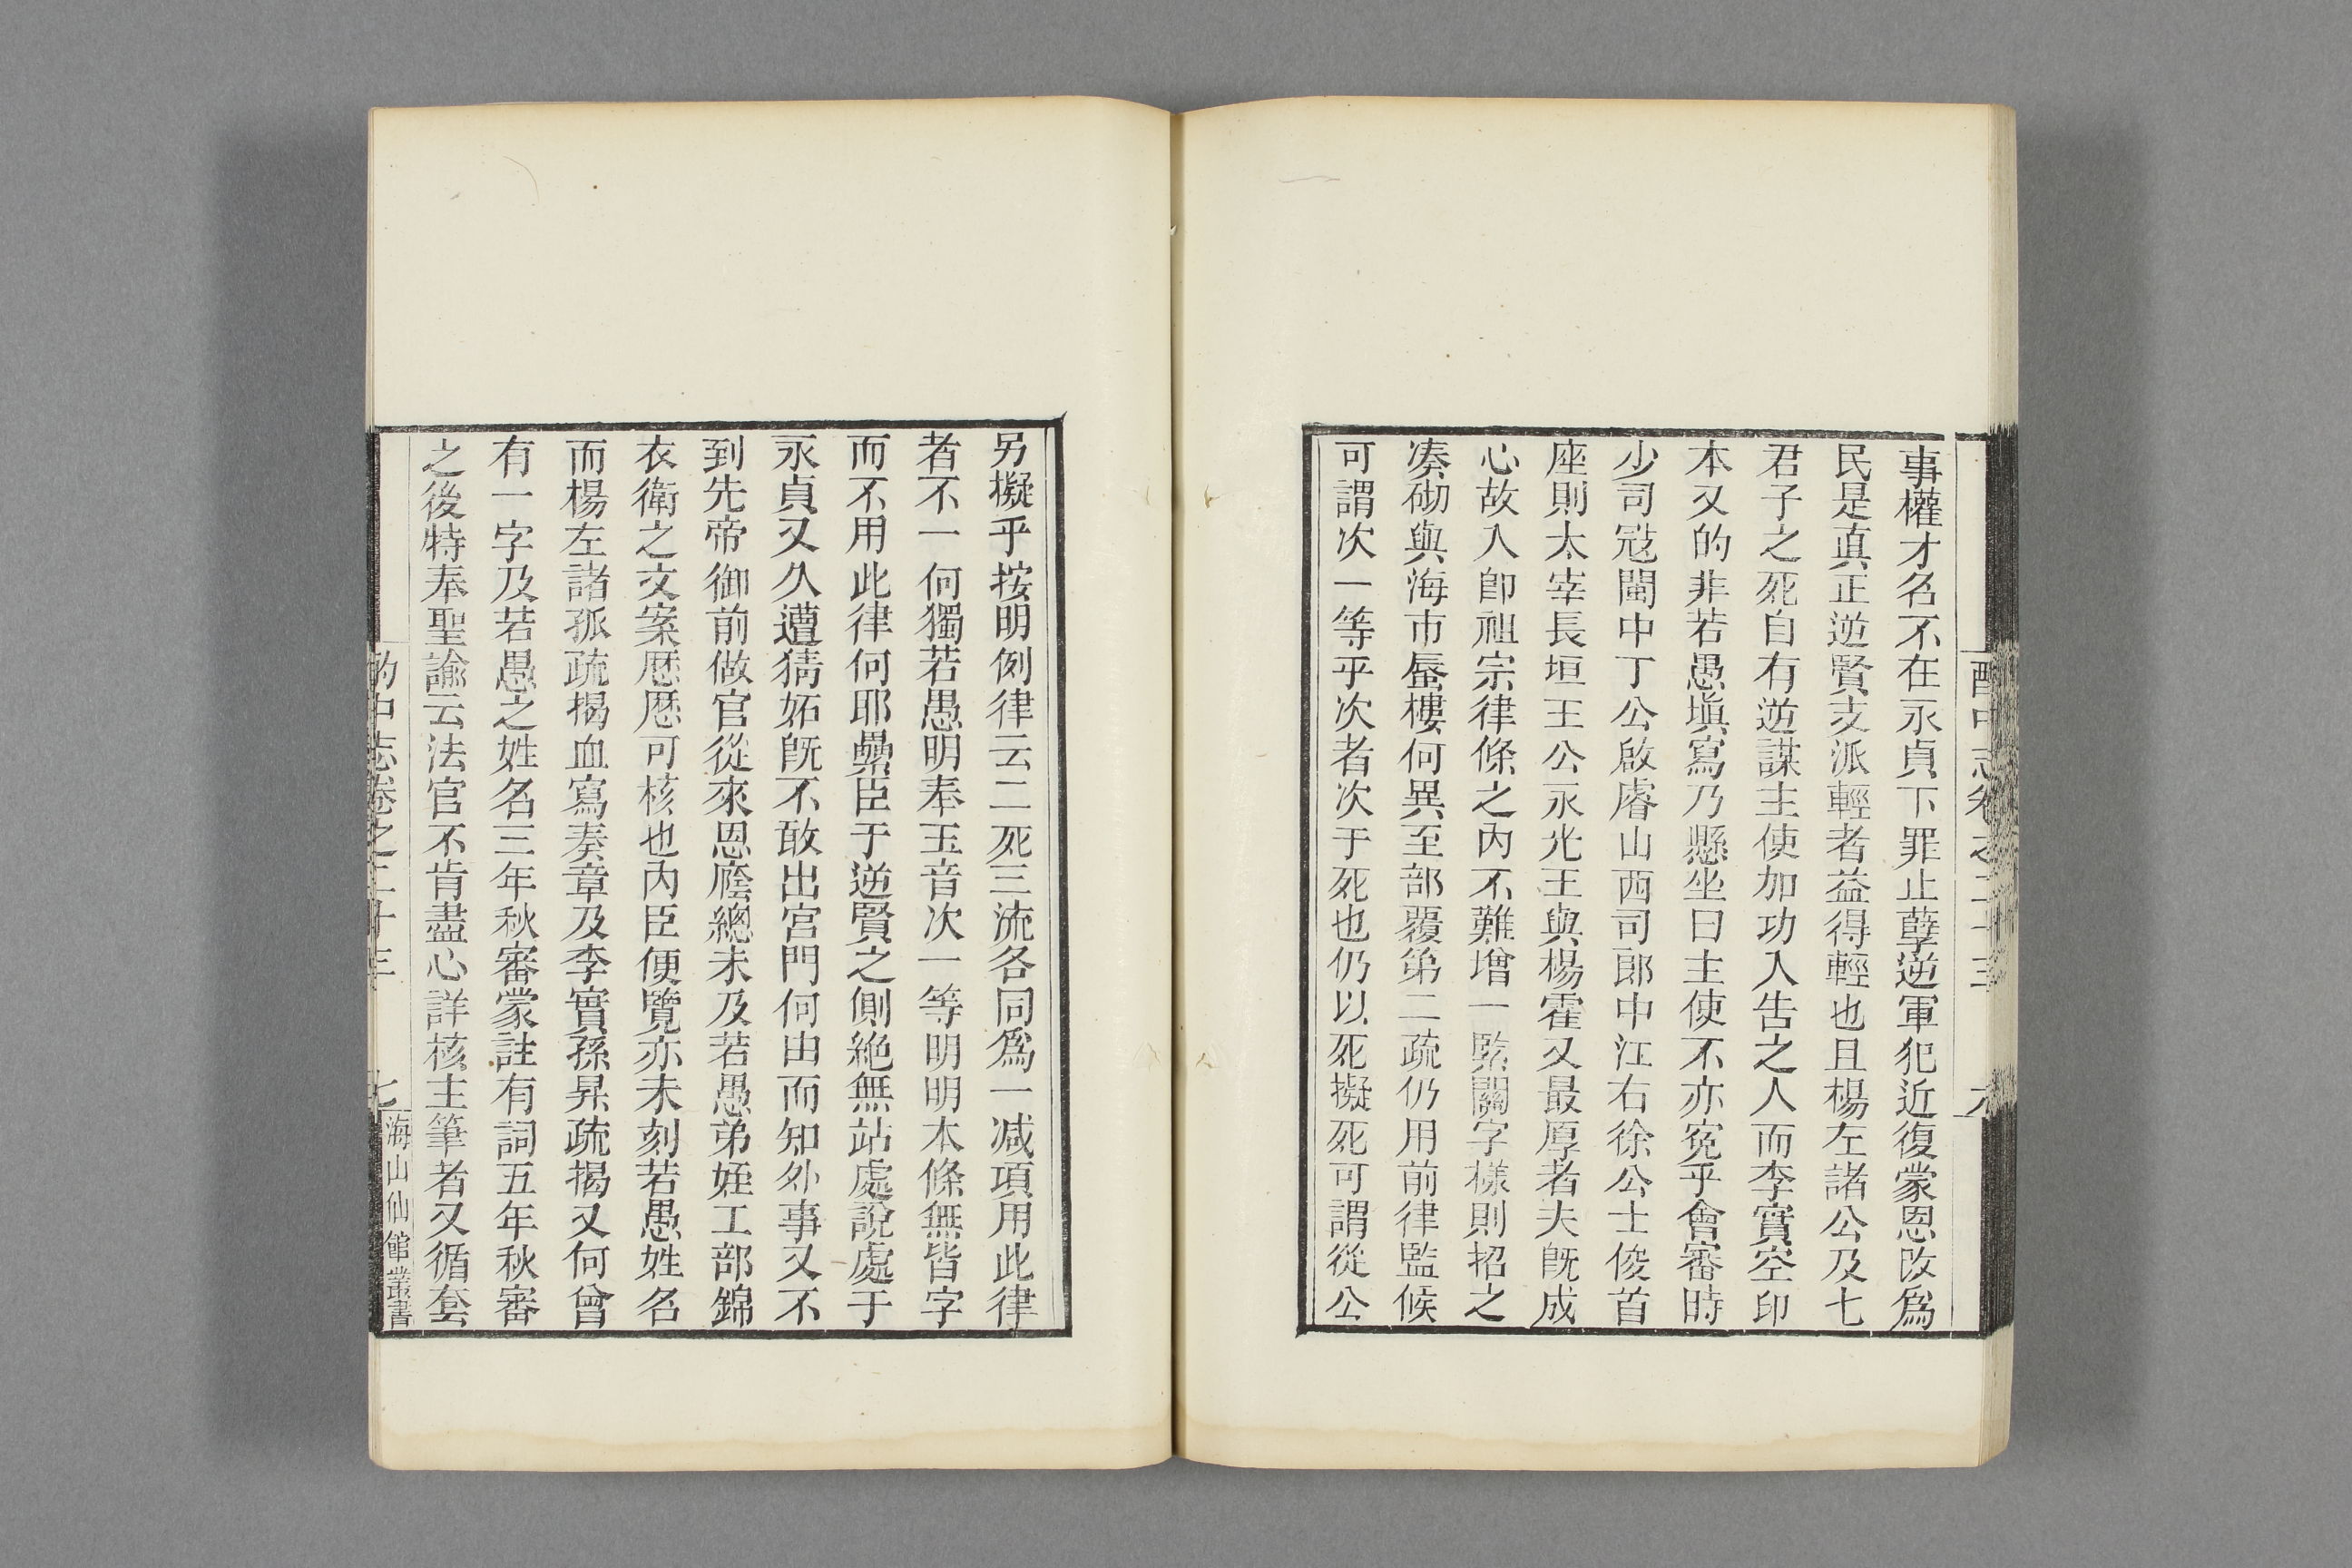 事權才名不在永貞下罪止孽逆軍犯近復蒙恩改爲
民是真正逆賢支派輕者益得輕也且楊左諸公及七
君子之死自有逆謀主使加功入告之人而李實空印
本又的非若愚塡寫乃懸坐曰主使不亦寃乎會審時
少司冦閩中丁公啟睿山西司郎中江右徐公士俊首
座則太宰長垣王公永光王與楊霍又最厚者夫旣成
心故入卽祖宗律條之內不難增一緊關字樣則招之
凑砌與海市蜃樓何異至部覆第二疏仍用前律監候
可謂次一等乎次者次于死也仍以死擬死可謂從公
另擬乎按明例律云二死三流各同爲一减項用此律
者不一何獨若愚明奉玉音次一等明明本條無皆字
而不用此律何耶纍臣于逆賢之側絶無站處說處于
永貞又久遭猜妬旣不敢出宮門何由而知外事又不
到先帝御前做官從來恩廕總未及若愚弟姪工部錦
衣衛之文案厯厯可核也內臣便覽亦未刻若愚姓名
而楊左諸孤疏揭血寫奏章及李實孫昇疏揭又何曾
有一字及若愚之姓名三年秋審蒙註有詞五年秋審
之後特奉聖諭云法官不肯盡心詳核主筆者又循套
酌中志卷之二十三
七
海山仙館叢書